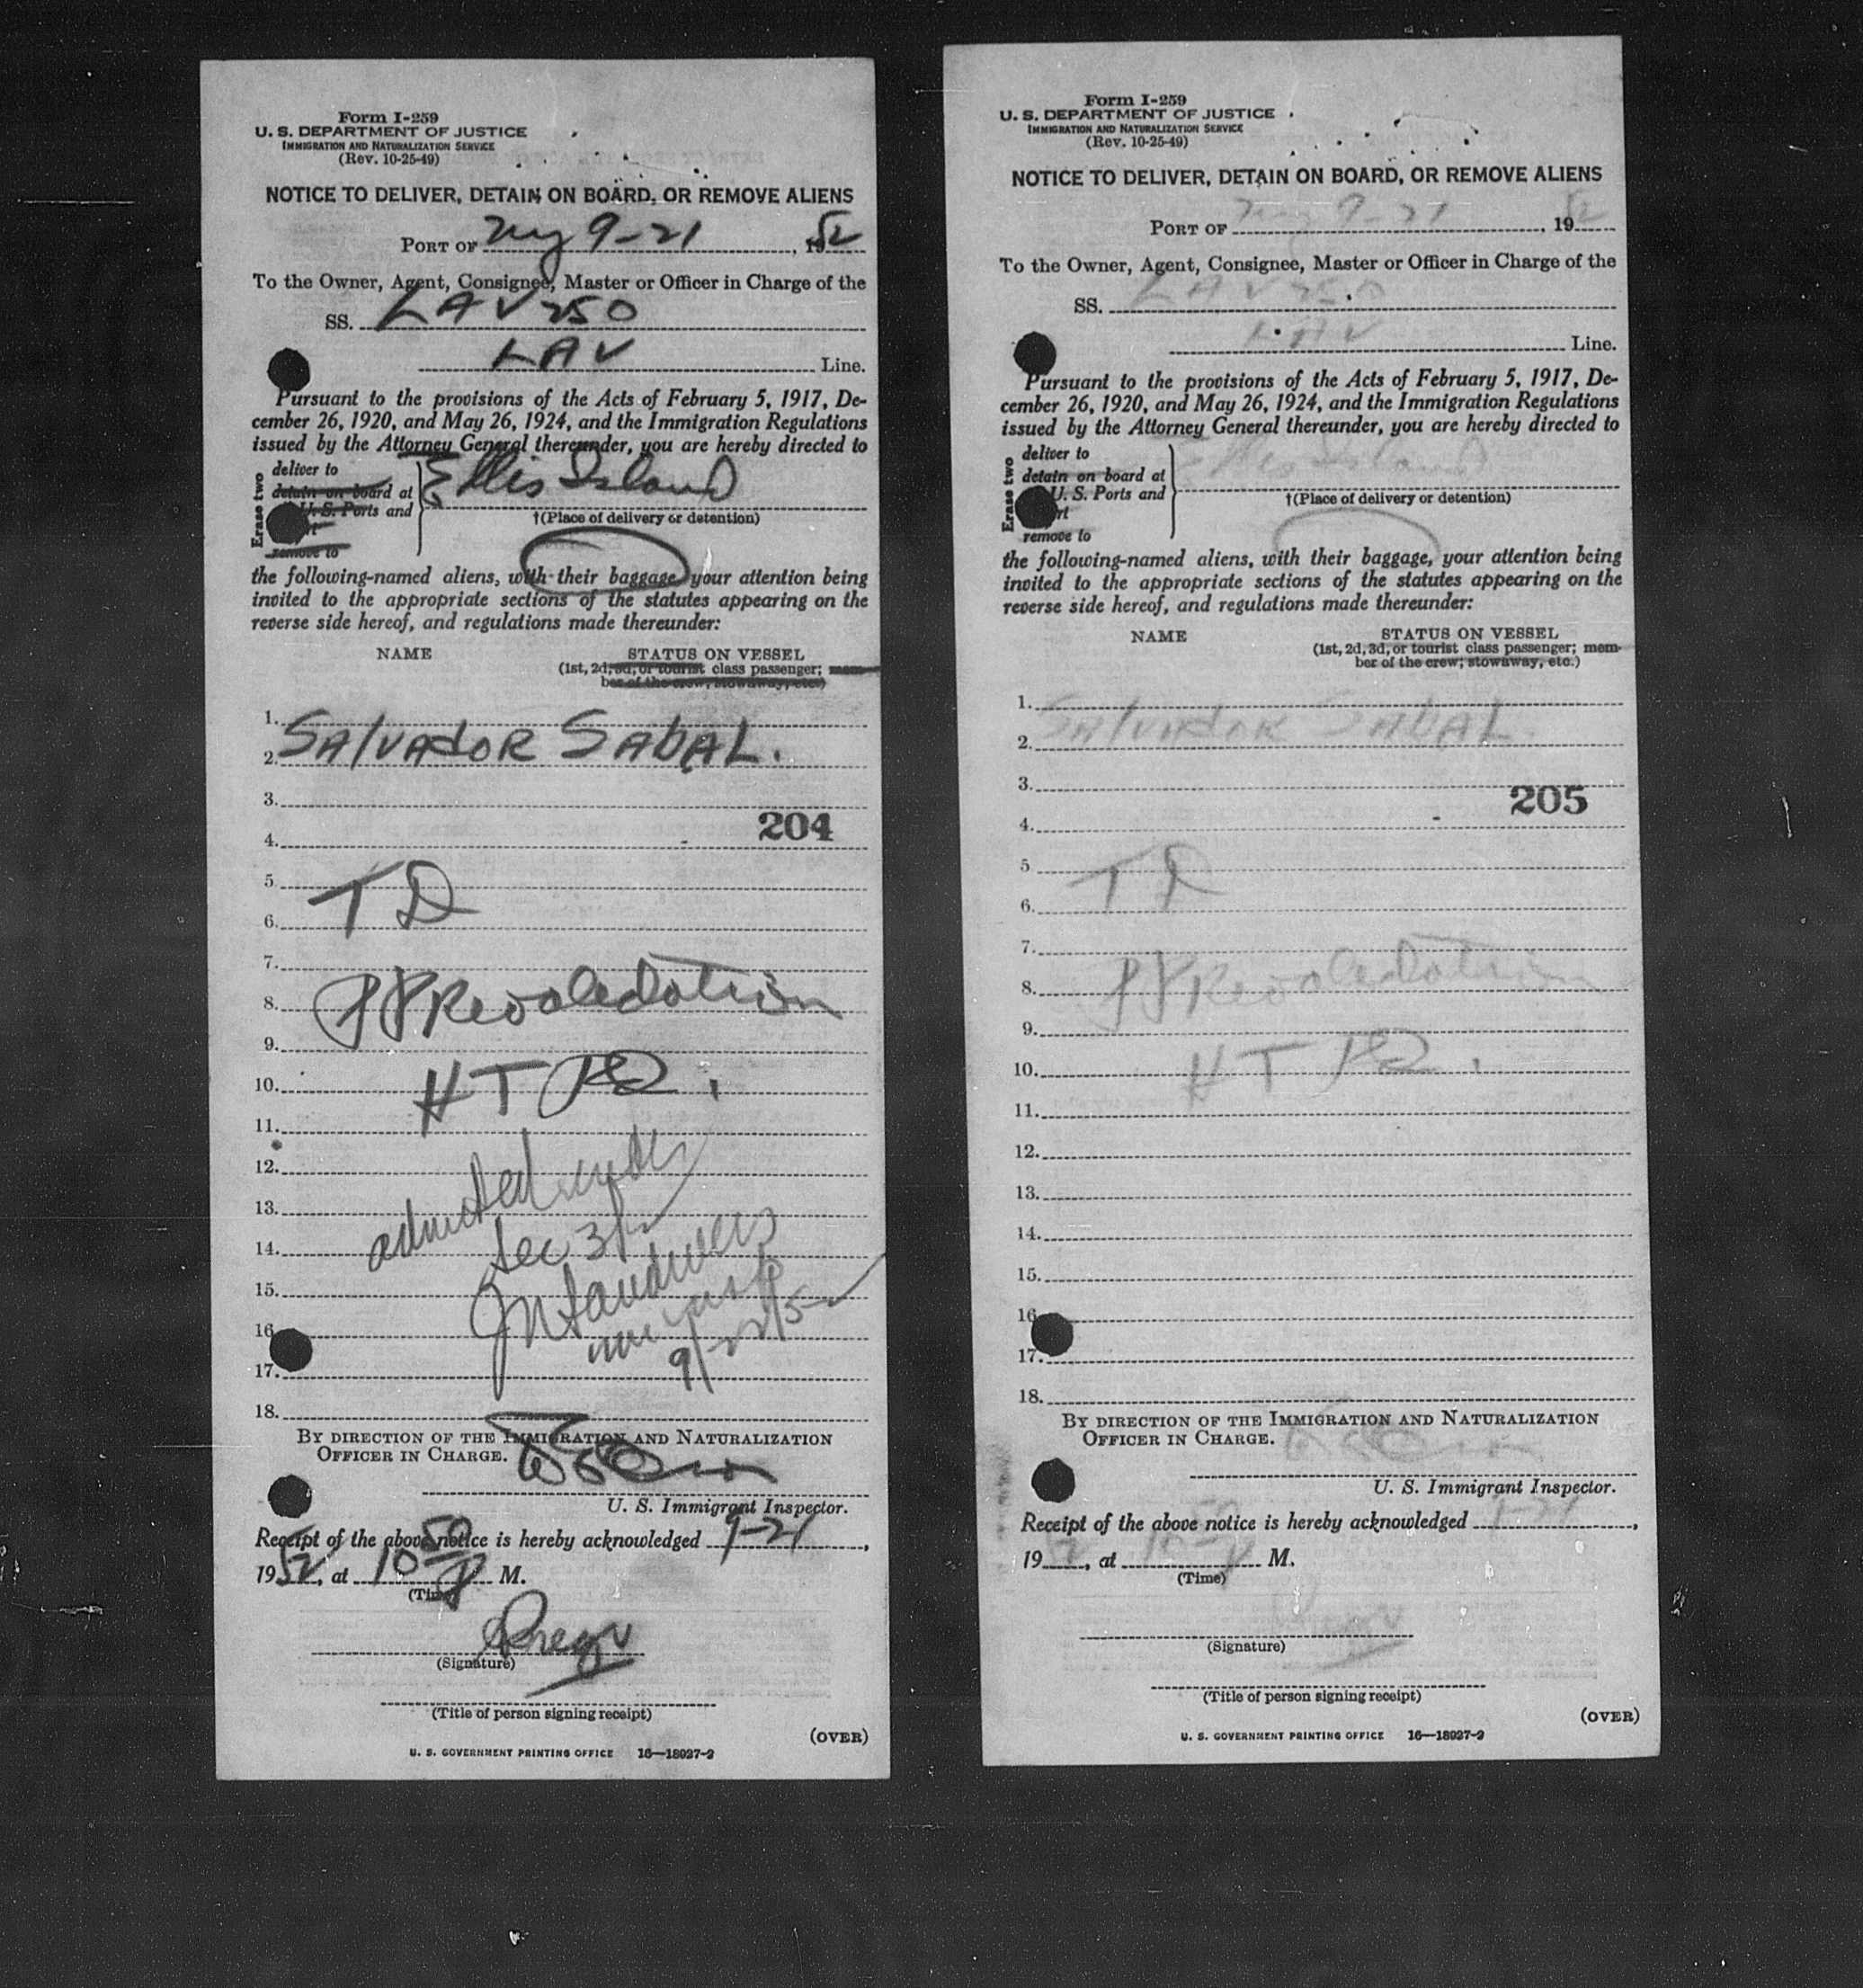 Form I-259
U. S. DEPARTMENT OF JUSTICE
IMMIGRATION AND NATURALIZATION SERVICE
(Rev. 10-25-49)
NOTICE TO DELIVER, DETAIN ON BOARD, OR REMOVE ALIENS
PORT OF NY 9-21, 1952
To the Owner, Agent, Consignee, Master or Officer in Charge of the
SS. LAV 250
LAV Line.
Pursuant to the provisions of the Acts of February 5, 1917, De-
cember 26, 1920, and May 26, 1924, and the Immigration Regulations
issued by the Attorney General thereunder, you are hereby directed to
Erase two
deliver to
detain on board at
U. S. Ports and
remove to
Ellis Island
†(Place of delivery or detention)
the following-named aliens, with their baggage, your attention being
invited to the appropriate sections of the statutes appearing on the
reverse side hereof, and regulations made thereunder:
NAME STATUS ON VESSEL
(1st, 2d, 3d, or tourist class passenger; mem-
ber of the crew; stowaway, etc.)
1.
2. SALVADOR SABAL.
3.
204
4.
5.
TD
6.
7.
8.
9.
HT
10.
11.
12.
admitted under
13.
Sec 3(2)
14.
15.
16
9/22/52
17.
18.
BY DIRECTION OF THE IMMIGRATION AND NATURALIZATION
OFFICER IN CHARGE.
U. S. Immigrant Inspector.
Receipt of the above notice is hereby acknowledged 9-21,
1952, at 10 50 P M.
(Time)
(Signature)
(Title of person signing receipt)
(OVER)
U. S. GOVERNMENT PRINTING OFFICE 16—18027-2
Form I-259
U. S. DEPARTMENT OF JUSTICE
IMMIGRATION AND NATURALIZATION SERVICE
(Rev. 10-25-49)
NOTICE TO DELIVER, DETAIN ON BOARD, OR REMOVE ALIENS
PORT OF NY 9-21, 1952
To the Owner, Agent, Consignee, Master or Officer in Charge of the
SS. LAV 250
LAV Line.
Pursuant to the provisions of the Acts of February 5, 1917, De-
cember 26, 1920, and May 26, 1924, and the Immigration Regulations
issued by the Attorney General thereunder, you are hereby directed to
Erase two
deliver to
detain on board at
U. S. Ports and
remove to
Ellis Island
†(Place of delivery or detention)
the following-named aliens, with their baggage, your attention being
invited to the appropriate sections of the statutes appearing on the
reverse side hereof, and regulations made thereunder:
NAME STATUS ON VESSEL
(1st, 2d, 3d, or tourist class passenger; mem-
ber of the crew; stowaway, etc.)
1.
SALVADOR SABAL.
2.
3.
205
4.
5
TD
6.
7.
8.
9.
HT
10.
11.
12.
13.
14.
15.
16
17.
18.
BY DIRECTION OF THE IMMIGRATION AND NATURALIZATION
OFFICER IN CHARGE.
U. S. Immigrant Inspector.
Receipt of the above notice is hereby acknowledged 9-21,
1952, at 10 50 P M.
(Time)
(Signature)
(Title of person signing receipt)
(OVER)
U. S. GOVERNMENT PRINTING OFFICE 16—18027-2